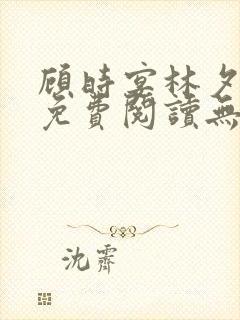 顧時宴林夕
免費閱讀無
沈霽